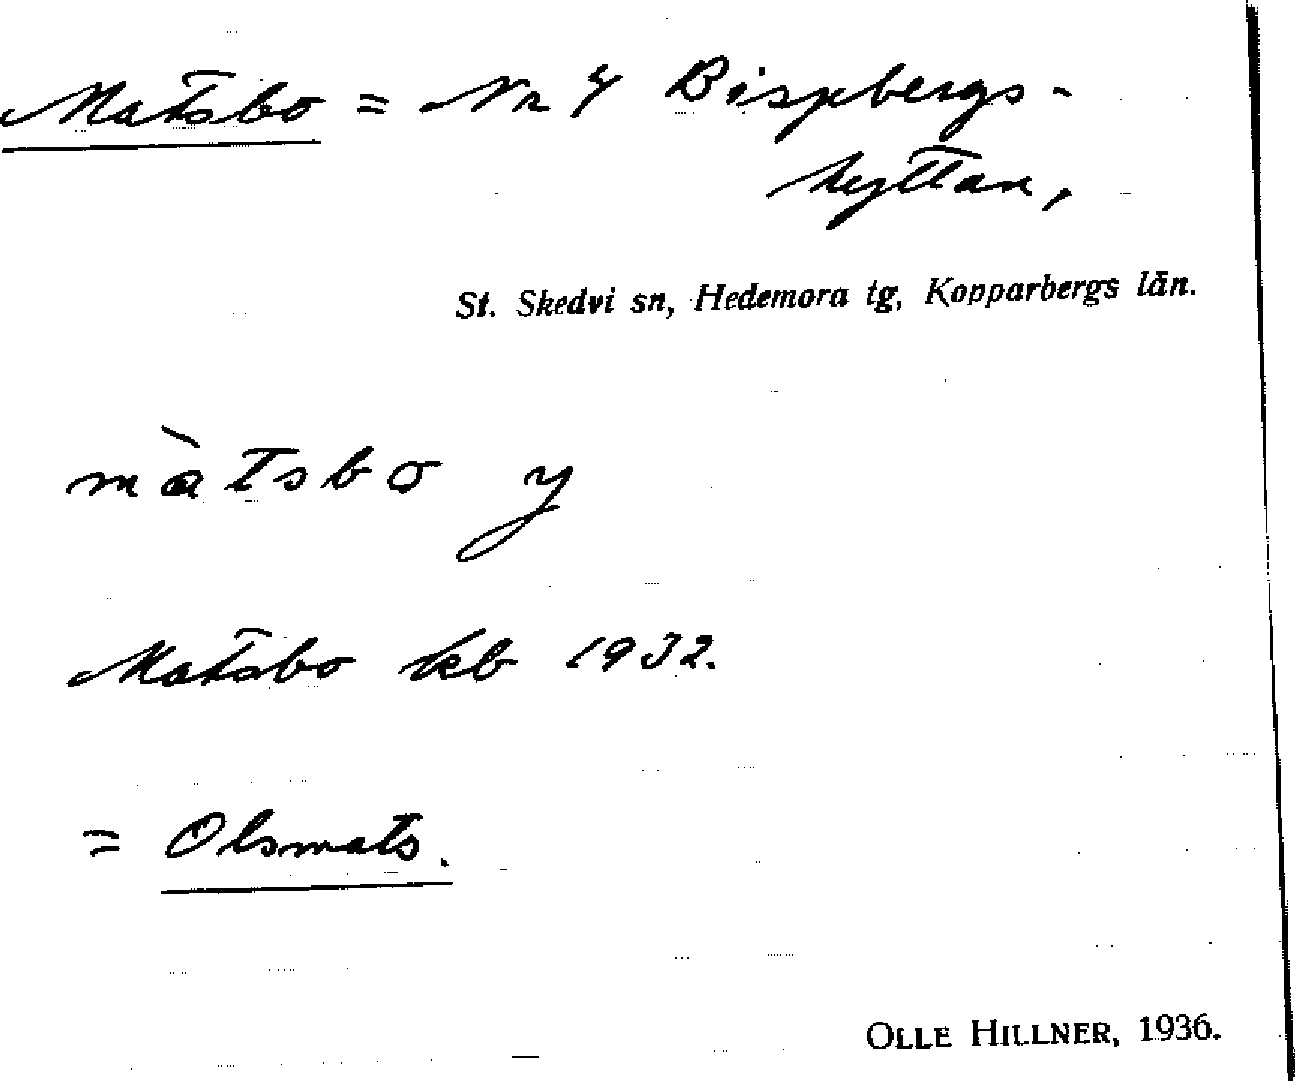 Matsbo = Nr 4 Bispbergs-
hyttan,
St. Skedvi sn, Hedemora tg, Kopparbergs län.
màtsbo y
Matsbo kb 1932.
= Olsmats.
OLLE HILLNER, 1936.